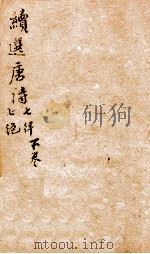 續選唐詩七律
七絕
下卷
mtoou.info